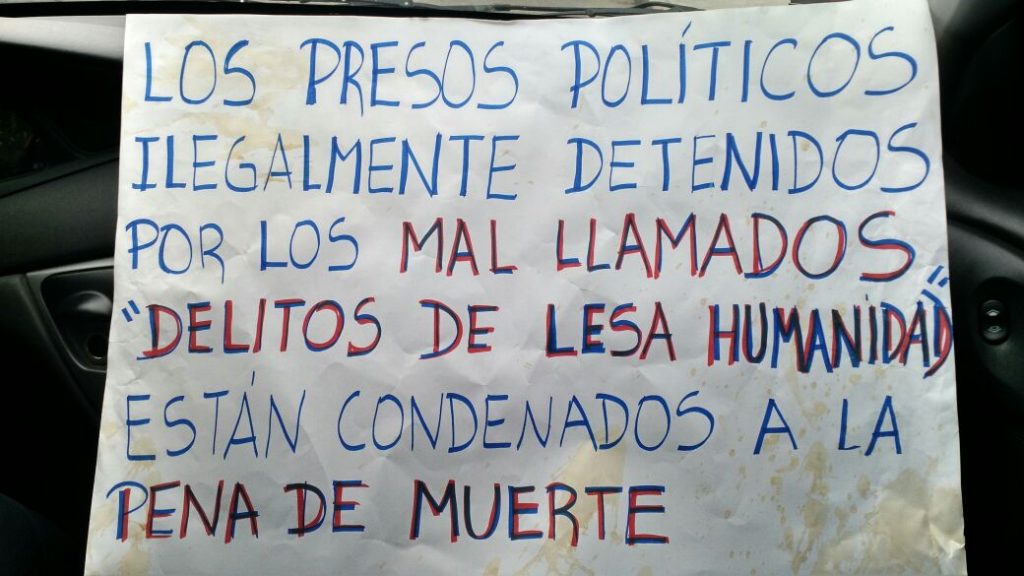 LOS PRESOS POLÍTICOS
ILEGALMENTE DETENIDOS
POR LOS MAL LLAMADOS
"DELITOS DE LESA HUMANIDAD"
ESTÁN CONDENADOS A LA
PENA DE MUERTE